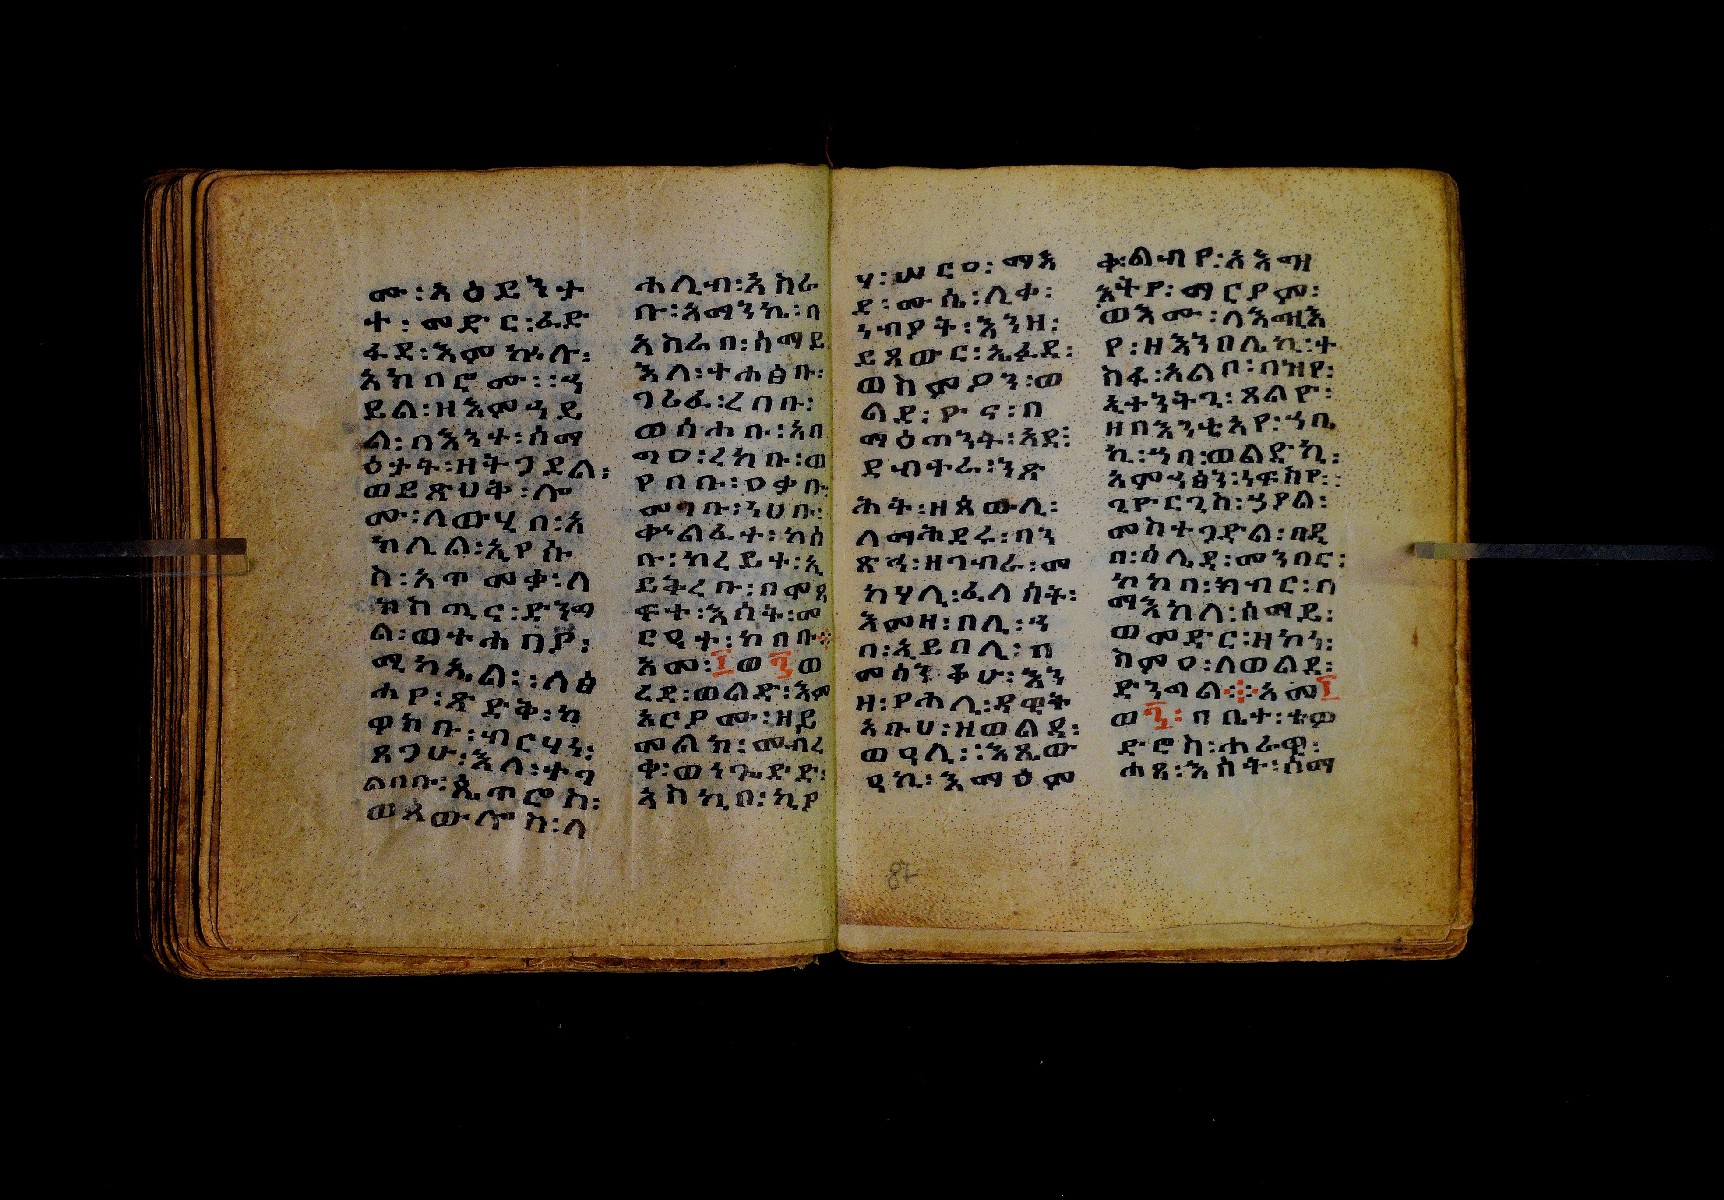 ሙ፡አዕይንታ
ተ፡መድር፡ፈድ
ፋደ፡እምኵሉ፡
አክበሮሙ፡፡ኃ
ይል፡ዘእምኃይ
ል፡በእንተ፡ሰማ
ዕታት፡ዘትጋደል፡
ወይጽህቅ፡ሎ
ሙ፡ለውሂበ፡አ
ክሊል፡ኢየሱ
ስ፡አጥመቀ፡ለ
ክስጢና፡ድንግ
ል፡ወተሐበያ፡
ሚካኤል፡፡ለፅ
ሐየ፡ጽድቅ፡ከ
ዋክቡ፡ብርሃነ፡
ጸጋሁ፡እለ፡ተገ
ልበቡ፡ጴጥሮስ፡
ወጳውሎስ፡ለ
ሐሊብ፡እስራ
ቡ፡አማንኬ፡በ
አስራበ፡ሰማይ
እለ፡ተሐፅቡ፡
ገሪፈ፡ረበቡ፡
ወሰሐቡ፡አበ
ግዐ፡ረከቡ፡ወ
የበቡ፡ዐቀቡ
መገቡ፡ነሀቡ፡
ቀነልፈተ፡ከሰ
ቡ፡ከረይተ፡ኢ
ይትረቡ፡በሞጻ
ፍተ፡እሳት፡መ
ሮዳተ፡ከበቡ፨
አመ፡፲ወ፯ወ
ረደ፡ወልድ፡እም
አርያሙ፡ዘይ
መልክ፡መብረ
ቀ፡ወነጐድድ፡
አስኪበ፡ኪያ
ሃ፡ሠርዐ፡ማእ
ደ፡ሙሴ፡ሊቀ፡
ነብያት፡እንዘ፡
ይጸውር፡ኢፊደ፡
ወስምዖን፡ወ
ልደ፡ዮና፡በ
ማዕጠንት፡አደ፡
ደብተራ፡ንጽ
ሕት፡ዘጸውሊ፡
ለማሕደሩ፡በን
ጽሕ፡ዘገብራ፡መ
ከሃሊ፡ፈለሰት፡
እምዘ፡በሊ፡ኀ
በ፡ኢይበሊ፡በ
መሰንቆሁ፡እን
ዘ፡የሐሊ፡ዳዊት
አቡሀ፡ዘወልደ፡
ወዳሊ፡፡እጼው
ዳኪ፡እማዕም
ቀ፡ልብየ፡እእግ
እትየ፡ማርያም፡
ወእሙ፡ለእግዚእ
የ፡ዘእንበሌኪ፡ተ
ስፋ፡አልቦ፡በዝየ፡
ኢተንትጊ፡ጸልዮ፡
ዘበእንቲአየ፡ኀቤ
ኪ፡ኀበ፡ወልድኪ፡
እምኀፅን፡ነፍስየ፡፡
ጊዮርጊስ፡ኃያል፡
መስተጋድል፡በዲ
በ፡ፀሊዳ፡መንበር፡
ኮከበ፡ክብር፡በ
ማእከለ፡ሰማይ፡
ወመድር፡ዘኮነ፡
ስምዐ፡ለወልደ፡
ድንግል፨አመ፲
ወ፯፡በቤተ፡ቴዎ
ድሮስ፡ሐራዊ፡
ሐጸ፡እሳት፡ሰማ
87